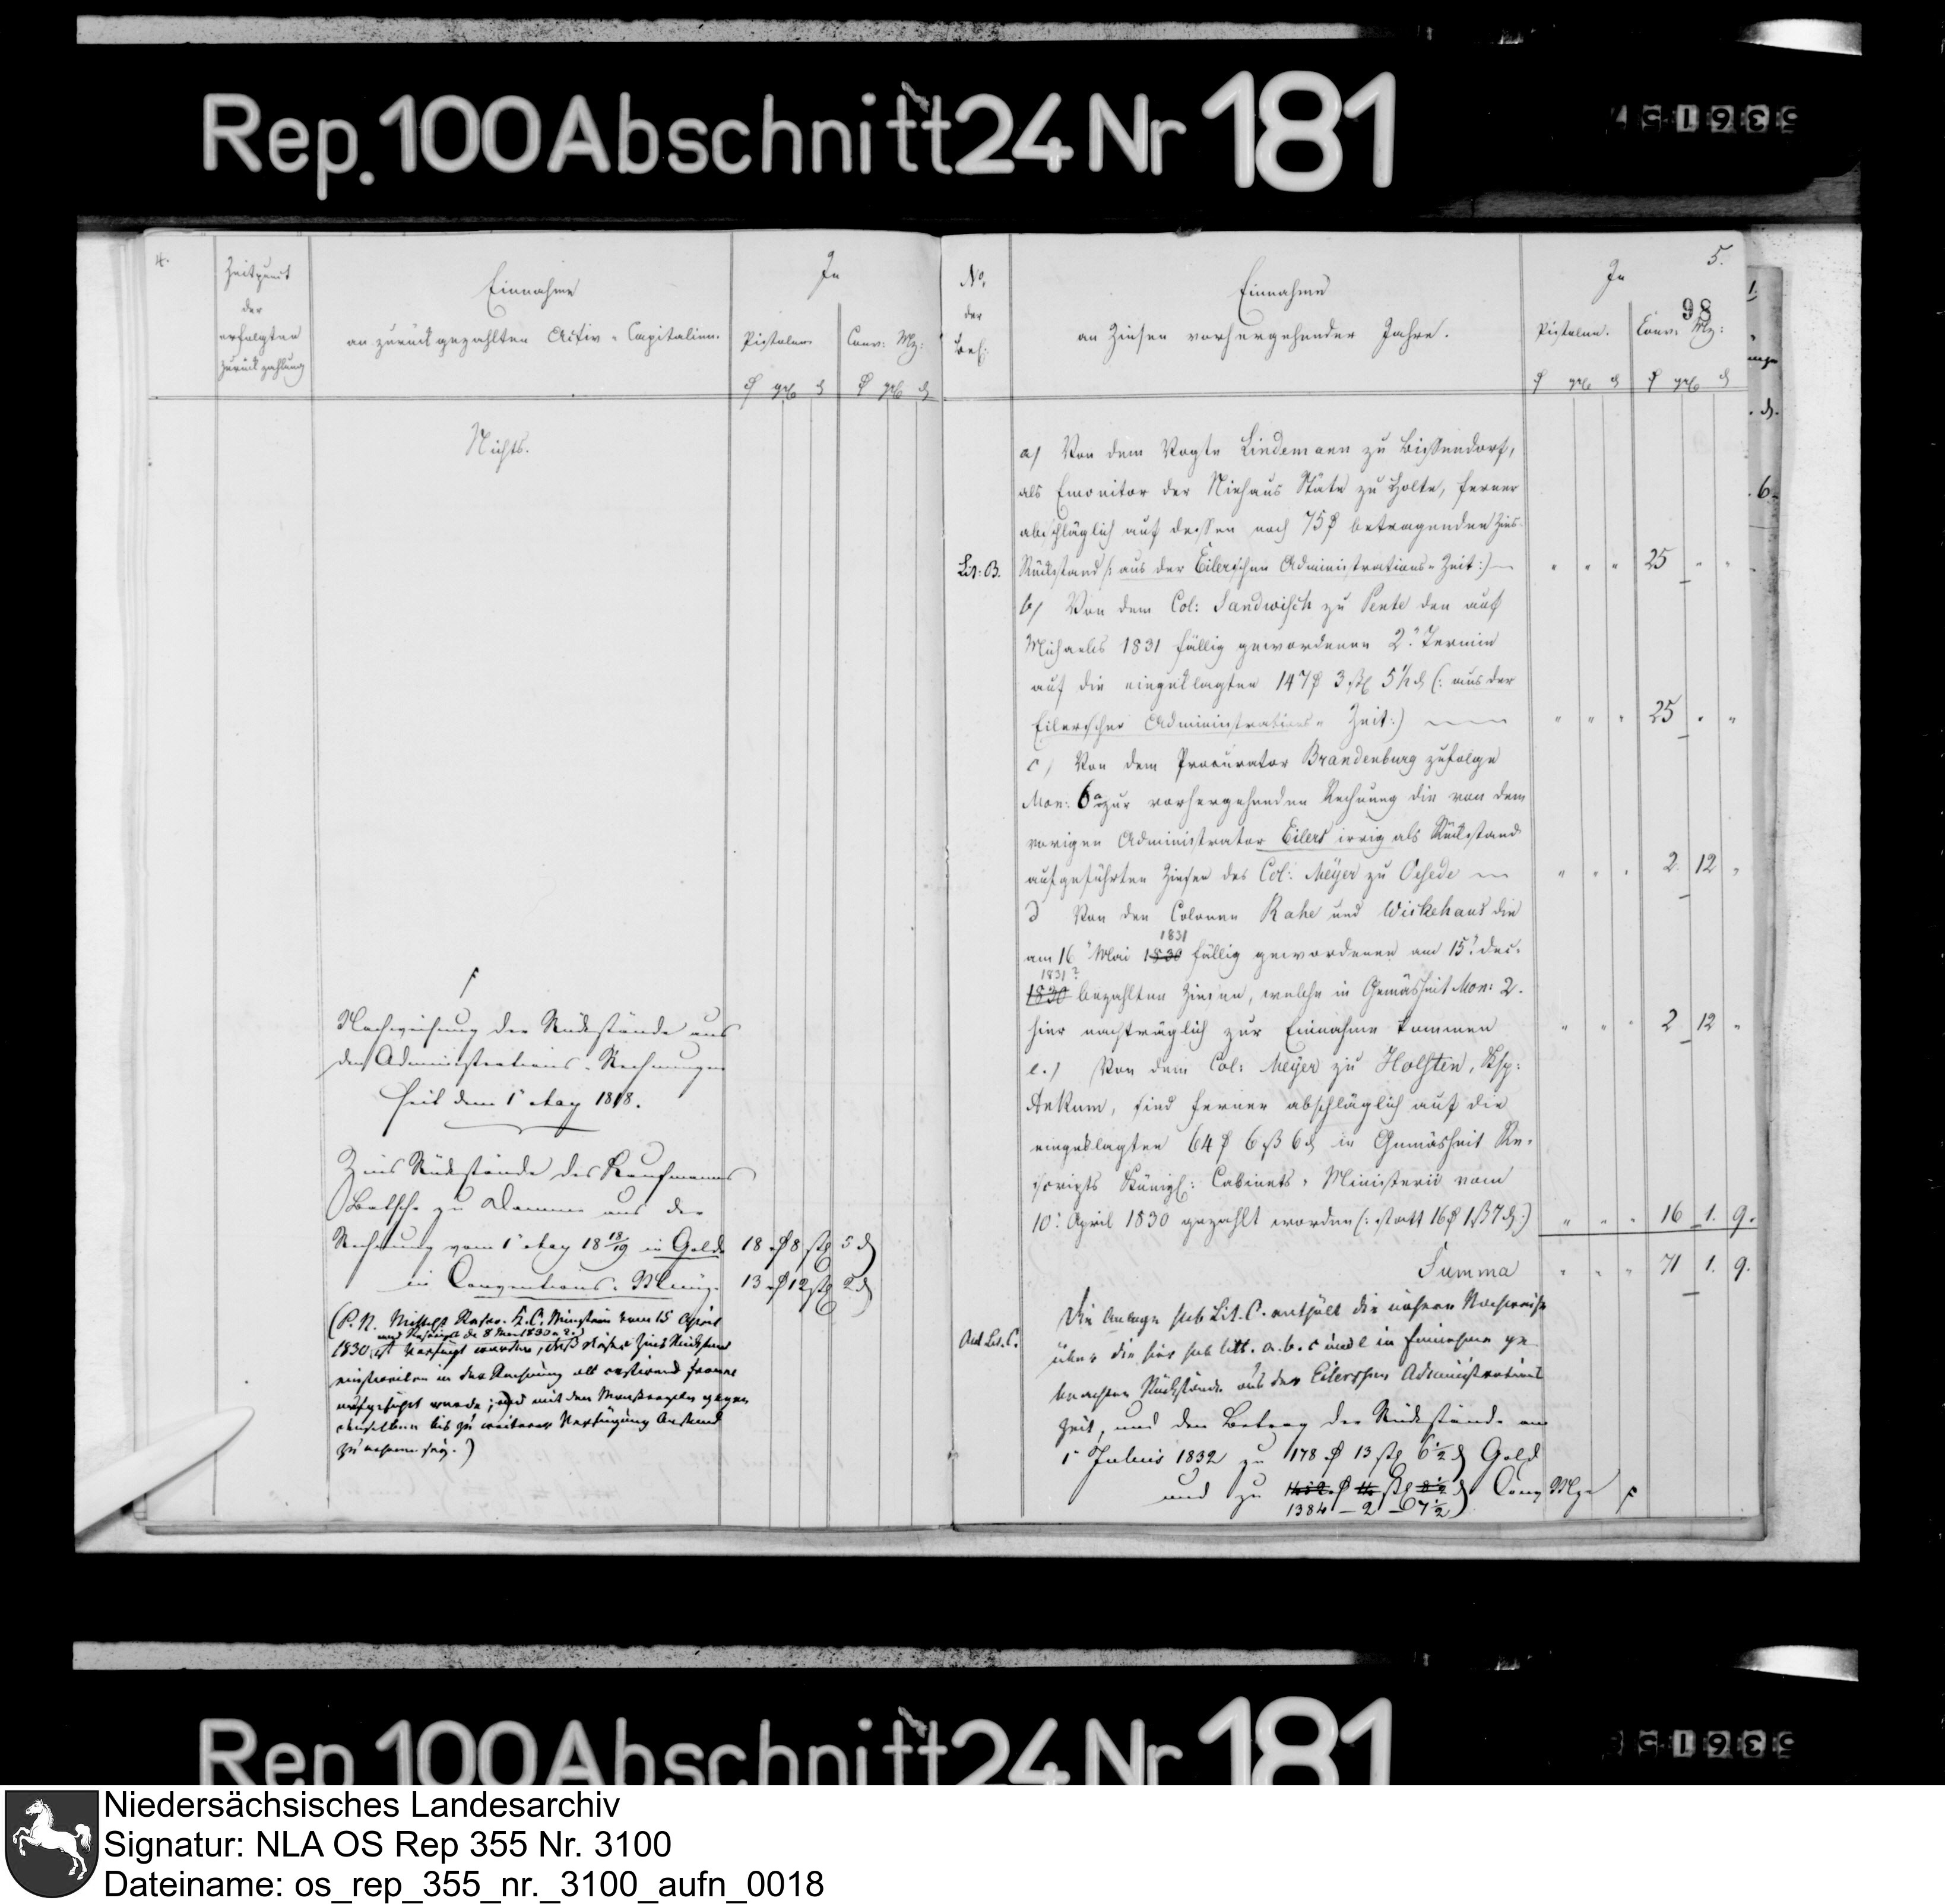 Rep. 100 Abschnitt 24 Nr 181
4.
Zeitpunct
der
erfolgten
Zurückzahlung
Einnahme
an zurückgezahlten Activ-Capitalien.
In
Pistolen
Conv: Mz:
Nichts.
Nachweisung der Rückstände aus
den Administrations-Rechnungen
seit dem 1n May 1818.
Zins Rückstände des Kaufmanns
zu Damme aus der
Rechnung vom 1n May 18 18/19 in Golde 18 8 5
in Conventions-Münze 13 12 2
(P. N. Mittelst Rescr. K. C. Minsterii vom 15 April
1830 ist verfügt worden, daß Zins Rückstand
einstweilen in der Rechnung als restirend
aufgeführt werde; und mit den Maasregeln gegen
denselben bis zu weiterer Verfügung Anstand
zu nehmen sey.)
5.
98
No.
der
Bel:
Einnahme
an Zinsen vorhergehender Jahre.
In
Pistolen.
Conv: Mz:
a) Von dem Vogte Lindemann zu Bissendorf,
als Emonitor der Niehaus Stäte zu Holte, ferner
abschläglich auf dessen noch 75 betragenden Zins-
Lit: B. Rückstand (: aus der Eilerschen Administrations-Zeit:) " " " 25 " "
b) Von dem Col: Sandwisch zu Pente den auf
Michaelis 1831 fällig gewordenen 2n Termin
auf die eingeklagten 147 3 5 1/2 (: aus der
Eilerscher Administrations-Zeit:) " " " 25 " "
c) Von dem Procurator Brandenburg zufolge
Mon: 6a zur vorhergehenden Rechnung die von dem
vorigen Administrator Eilers irrig als Rückstand
aufgeführten Zinsen des Col: Meyer zu Oesede " " " 2 12 "
d Von den Colonen Rahe und Wiskehaus die
1831
am 16n Mai 1830 fällig gewordenen am 15n Dec.
1831?
1830 bezahlten Zinsen, welche in Gemäsheit Mon: 2.
hier nachträglich zur Einnahme kommen " " " 2 12 "
e.) Von dem Col: Meyer zu Holsten, Ksp:
Ankum, sind ferner abschläglich auf die
eingeklagten 64 6 6 in Gemäsheit Re-
scripts Königl: Cabinets-Ministerii vom
10n April 1830 gezahlt worden (: statt 16 1 7 :) " " " 16 1. 9.
Summa " " " 71 1. 9.
Anl. Lit. C. Die Anlage sub Lit. C. enthält die nähere Nachweise
über die hier sub litt. a. b. c und e in Einnahme ge
brachten Rückstände aus der Eilerschen Administrations
Zeit, und den Betrag der Rückstände am
1n Julius 1832 zu 1178 13 6 1/2 Gold
und zu Conv Mze
1384 - 2 - 7 1/2
Rep. 100 Abschnitt 24 Nr 181
Niedersächsisches Landesarchiv
Signatur: NLA OS Rep 355 Nr. 3100
Dateiname: os_rep_355_nr._3100_aufn_0018